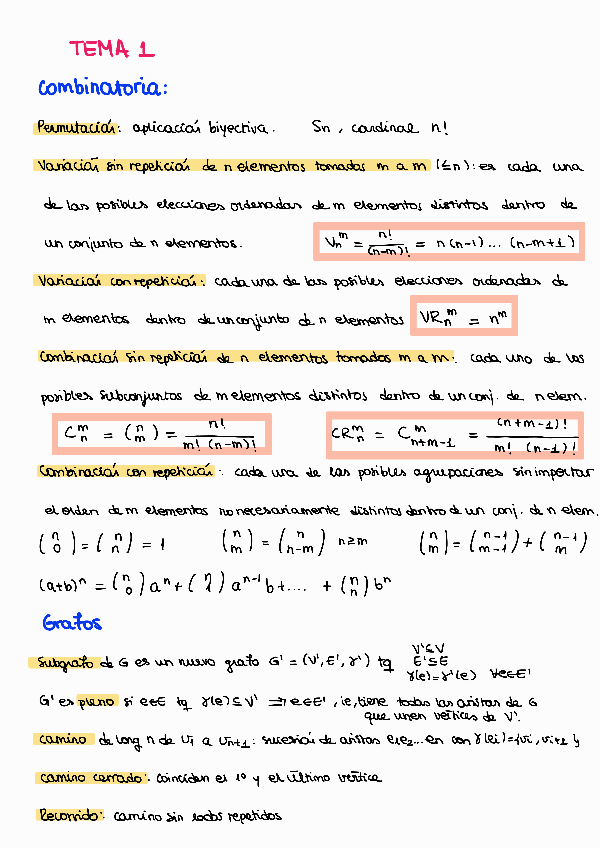 TEMA 1
Combinatoria:
Permutación: aplicación biyectiva. Sn, cardinal n!
Variación sin repetición de n elementos tomados m a m (≤n): es cada una
de las posibles elecciones ordenadas de m elementos distintos dentro de
un conjunto de n elementos. V_n^m = n!/(n-m)! = n(n-1)...(n-m+1)
Variación con repetición: cada una de las posibles elecciones ordenadas de
m elementos dentro de un conjunto de n elementos VR_n^m = n^m
Combinación sin repetición de n elementos tomados m a m: cada uno de los
posibles subconjuntos de m elementos distintos dentro de un conj. de n elem.
C_n^m = (n m) = n!/(m!(n-m)!) CR_n^m = C_{n+m-1}^m = (n+m-1)!/(m!(n-1)!)
Combinación con repetición: cada una de las posibles agrupaciones sin importar
el orden de m elementos no necesariamente distintos dentro de un conj. de n elem.
(n 0) = (n n) = 1 (n m) = (n n-m) n≥m (n m) = (n-1 m-1) + (n-1 m)
(a+b)^n = (n 0) a^n + (n 1) a^{n-1} b + .... + (n n) b^n
Grafos
V'⊆V
Subgrafo de G es un nuevo grafo G' = (V', E', γ') tq E'⊆E
γ(e)=γ'(e) ∀e∈E'
G' es pleno si e∈E tq γ(e)⊆V' ⇒ e∈E', ie, tiene todas las aristas de G
que unen vértices de V'.
camino de long n de v1 a vn+1: sucesión de aristas e1e2...en con γ(ei)={vi, vi+1}
camino cerrado: coinciden el 1º y el último vértice
Recorrido: camino sin lados repetidos